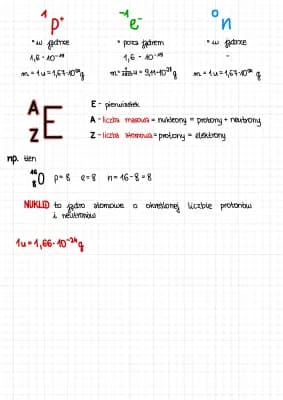 ¹p⁺ ⁻¹e⁻ ⁰n
• w jądrze • poza jądrem • w jądrze
1,6 · 10⁻¹⁹ 1,6 · 10⁻¹⁹ -
m = 1u = 1,67·10⁻²⁴g m = u = 9,11·10⁻²⁸g m = 1u = 1,67·10⁻²⁴g
E - pierwiastek
A A - liczba masowa = nukleony = protony + neutrony
Z E Z - liczba atomowa = protony = elektrony
np. tlen
¹⁶₈O p=8 e=8 n=16-8=8
NUKLID to jądro atomowe o określonej liczbie protonów
i neutronów
1u = 1,66·10⁻²⁴g